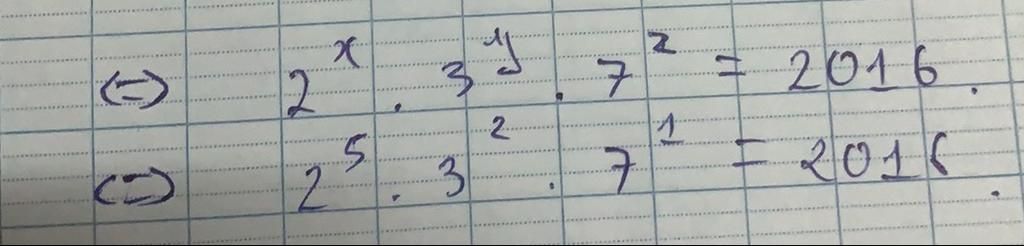 ⇔ 2^x . 3^y . 7^z = 2016.
⇔ 2^5 . 3^2 . 7^1 = 2016.